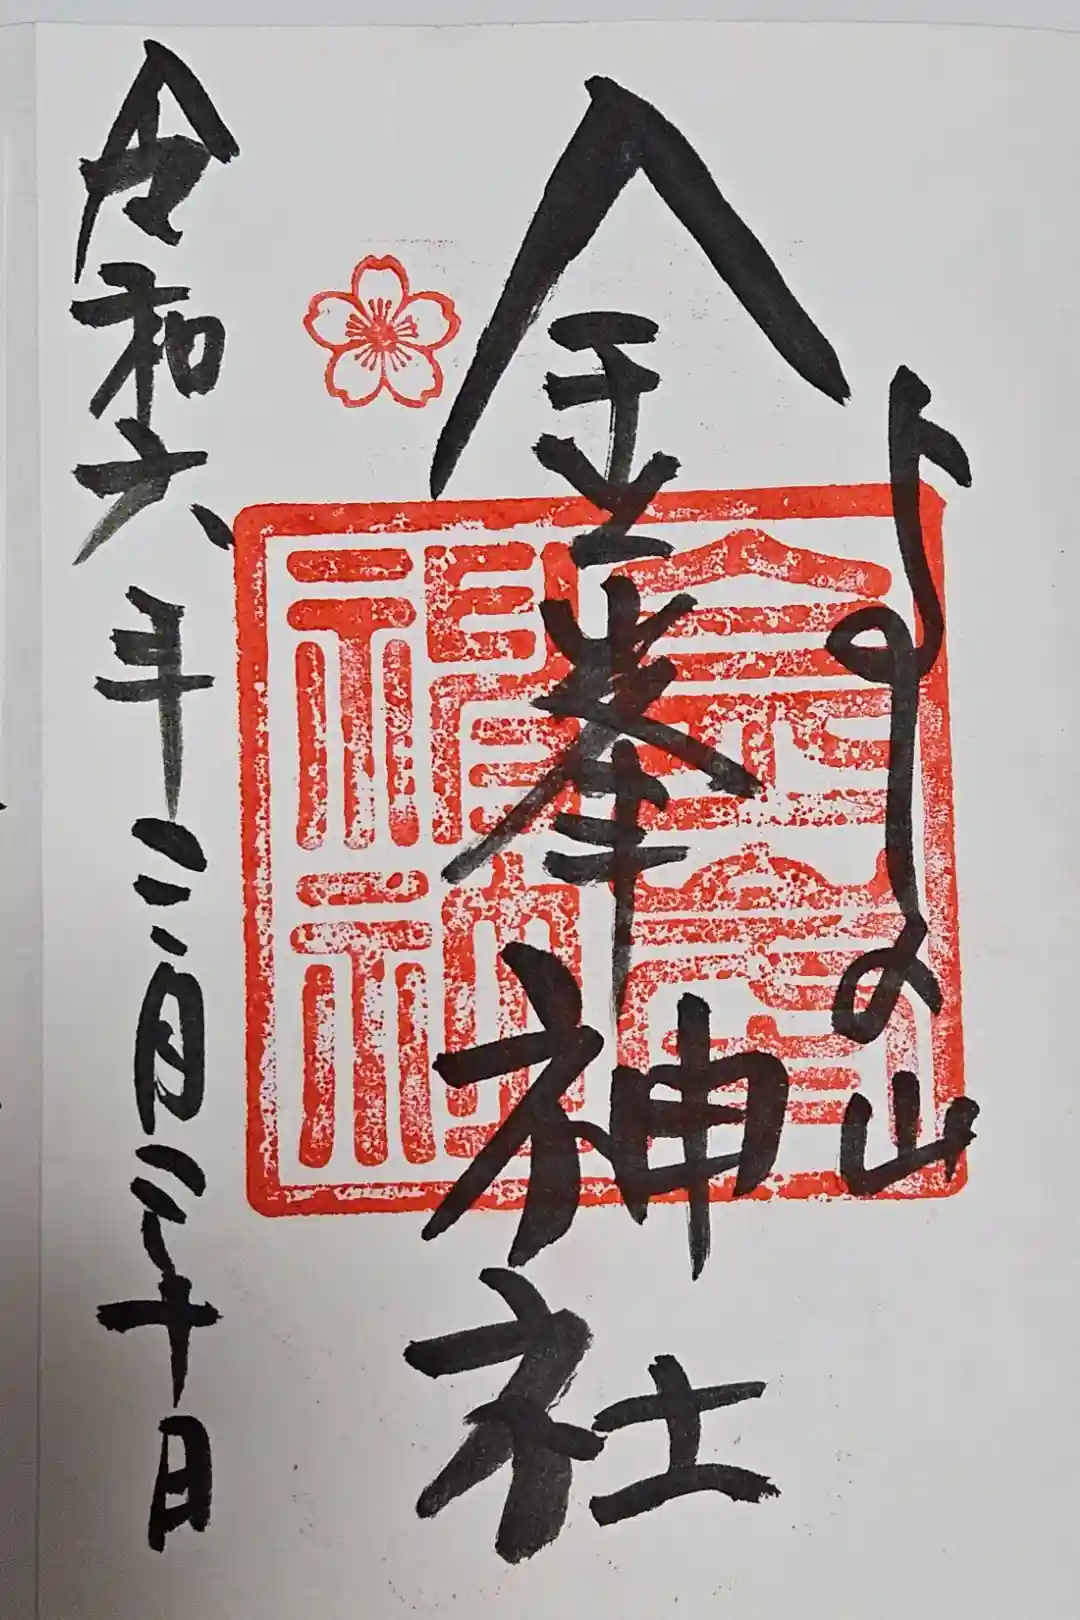 よしの山
金峯神社
令和六年三月三十日